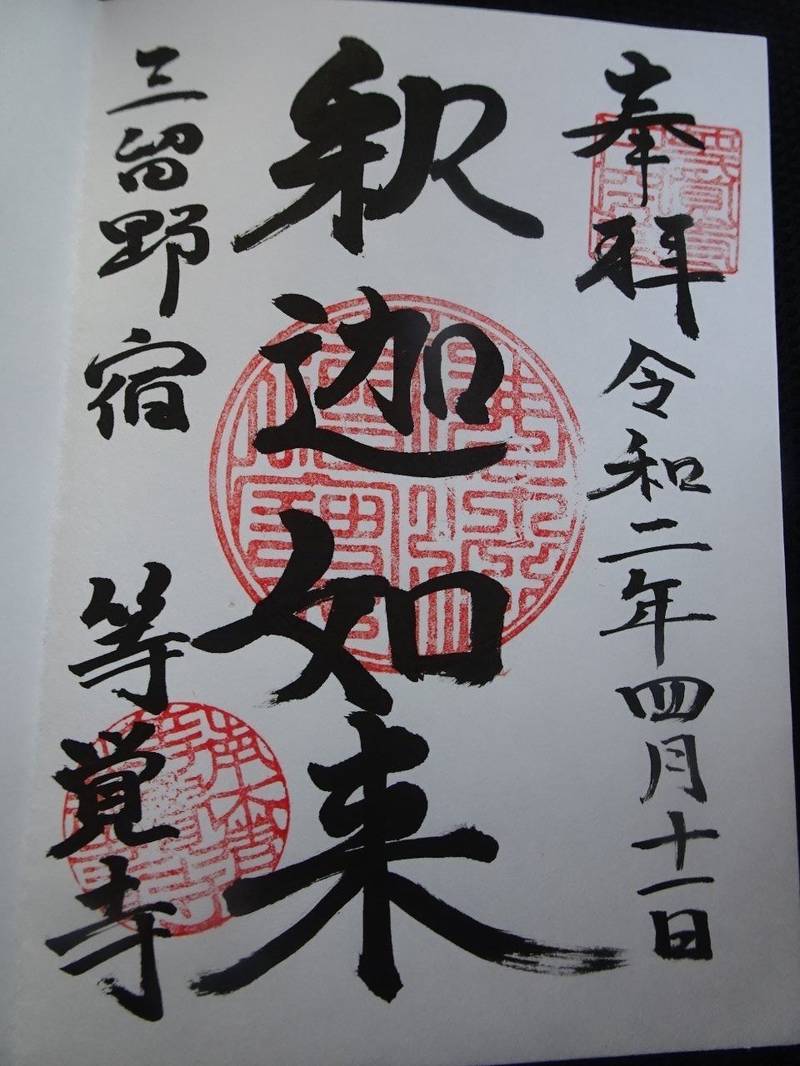 奉拝
令和二年四月十一日
釈迦如来
三留野宿
等覚寺